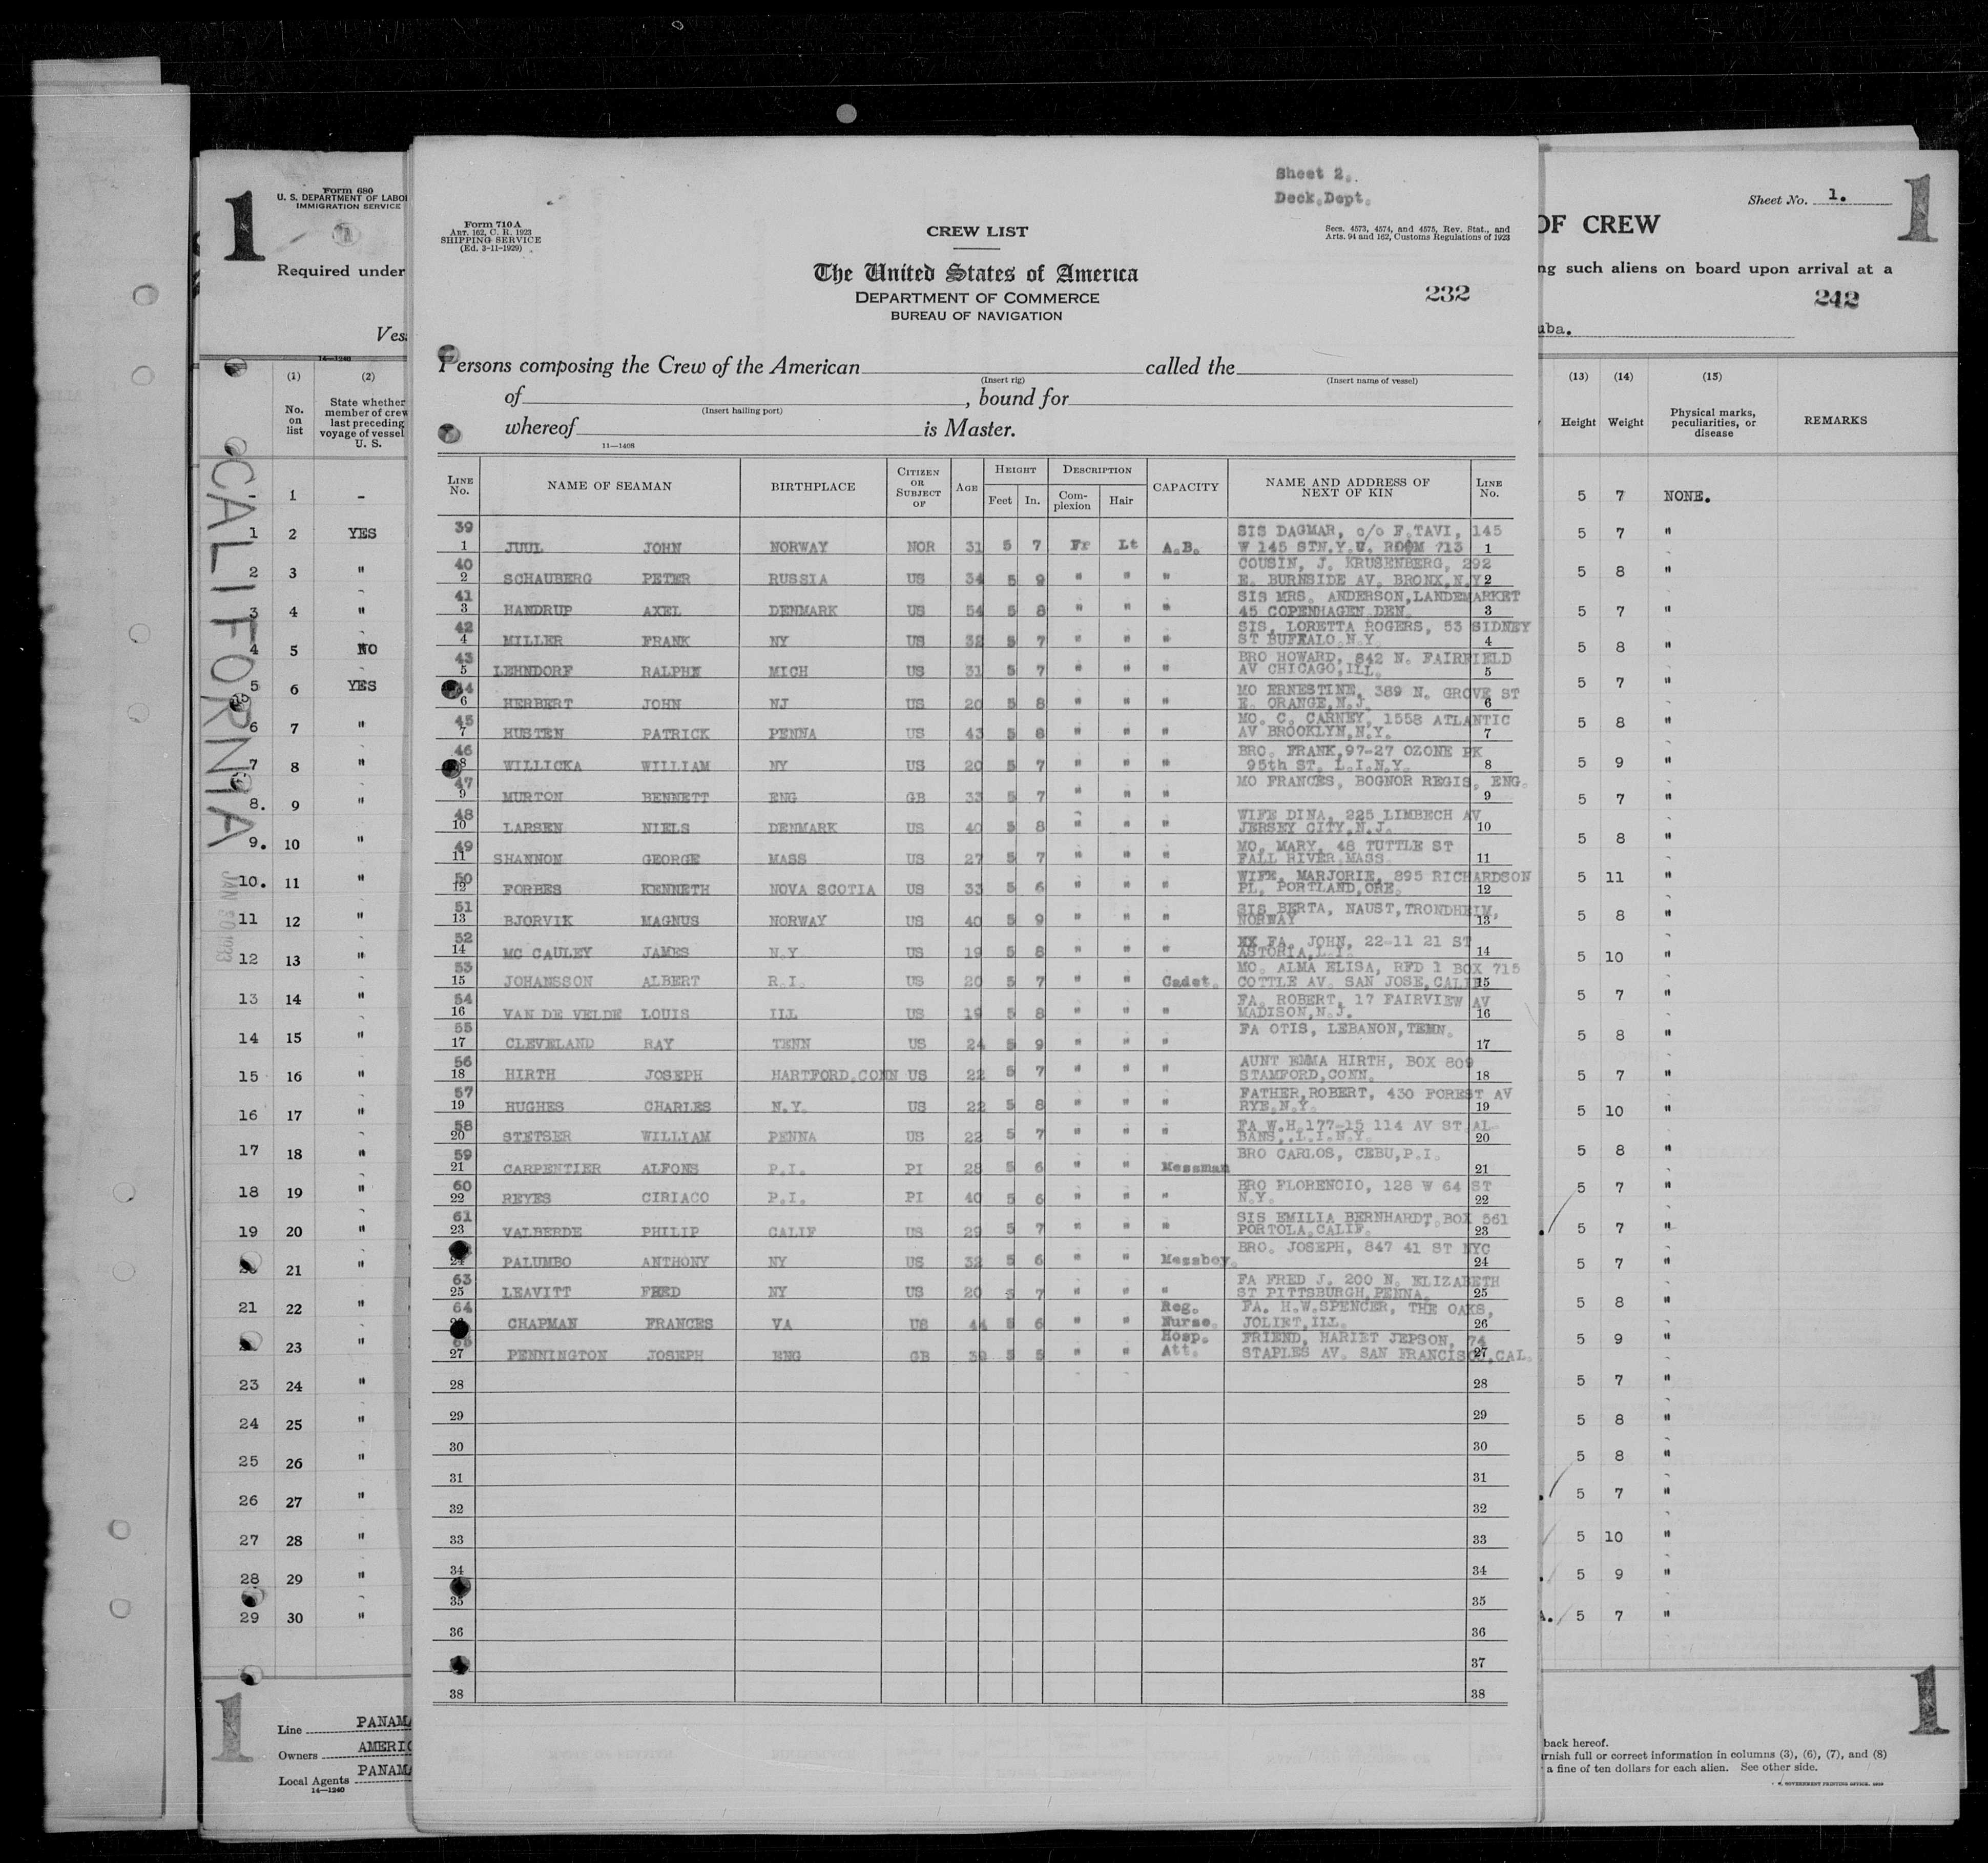 Sheet 2.
Deck.Dept.
Form 710A
ART. 162, C. R. 1923
SHIPPING SERVICE
(Ed. 3-11-1929)
CREW LIST
Secs. 4573, 4574, and 4575, Rev. Stat., and
Arts. 94 and 162, Customs Regulations of 1923
The United States of America
DEPARTMENT OF COMMERCE
BUREAU OF NAVIGATION
232
Persons composing the Crew of the American called the
(Insert rig) (Insert name of vessel)
of , bound for
(Insert hailing port)
whereof is Master.
11—1408
LINE No. NAME OF SEAMAN BIRTHPLACE CITIZEN OR SUBJECT OF AGE HEIGHT Feet In. DESCRIPTION Complexion Hair CAPACITY NAME AND ADDRESS OF NEXT OF KIN LINE No.
39 SIS DAGMAR, c/o F.TAVI, 145
1 JUUL JOHN NORWAY NOR 31 5 7 Fr Lt A.B. W 145 STN.Y.U. ROOM 713 1
40 COUSIN, J. KRUSENBERG, 292
2 SCHAUBERG PETER RUSSIA US 34 5 9 " " " E. BURNSIDE AV. BRONX,N.Y 2
41 SIS MRS. ANDERSON,LANDEMARKET
3 HANDRUP AXEL DENMARK US 54 5 8 " " " 45 COPENHAGEN DEN. 3
42 SIS, LORETTA ROGERS, 53 SIDNEY
4 MILLER FRANK NY US 32 5 7 " " " ST BUFFALO.N.Y. 4
43 BRO HOWARD, 842 N. FAIRFIELD
5 LEHNDORF RALPH MICH US 31 5 7 " " " AV CHICAGO,ILL. 5
44 MO ERNESTINE, 389 N. GROVE ST
6 HERBERT JOHN NJ US 20 5 8 " " " E. ORANGE,N.J. 6
45 MO. C. CARNEY, 1558 ATLANTIC
7 HUSTEN PATRICK PENNA US 43 5 8 " " " AV BROOKLYN,N.Y. 7
46 BRO. FRANK,97-27 OZONE PK
8 WILLICKA WILLIAM NY US 20 5 7 " " " 95th ST. L.I.N.Y. 8
47 MO FRANCES, BOGNOR REGIS, ENG.
9 MURTON BENNETT ENG GB 33 5 7 " " " 9
48 WIFE DINA, 225 LIMBECH AV
10 LARSEN NIELS DENMARK US 40 5 8 " " " JERSEY CITY,N.J. 10
49 MO. MARY, 48 TUTTLE ST
11 SHANNON GEORGE MASS US 27 5 7 " " " FALL RIVER MASS 11
50 WIFE, MARJORIE, 895 RICHARDSON
12 FORBES KENNETH NOVA SCOTIA US 33 5 6 " " " PL, PORTLAND,ORE. 12
51 SIS BERTA, NAUST,TRONDHEIM,
13 BJORVIK MAGNUS NORWAY US 40 5 9 " " " NORWAY 13
52 XX FA. JOHN, 22-11 21 ST
14 MC CAULEY JAMES N.Y US 19 5 8 " " " ASTORIA,L.I. 14
53 MO. ALMA ELISA, RFD 1 BOX 715
15 JOHANSSON ALBERT R.I. US 20 5 7 " " Cadet. COTTLE AV. SAN JOSE,CALIF 15
54 FA. ROBERT, 17 FAIRVIEW AV
16 VAN DE VELDE LOUIS ILL US 19 5 8 " " " MADISON,N.J. 16
55 FA OTIS, LEBANON,TENN.
17 CLEVELAND RAY TENN US 24 5 9 " " " 17
56 AUNT EMMA HIRTH, BOX 809
18 HIRTH JOSEPH HARTFORD.CONN US 22 5 7 " " " STAMFORD,CONN. 18
57 FATHER,ROBERT, 430 FOREST AV
19 HUGHES CHARLES N.Y. US 22 5 8 " " " RYE.N.Y. 19
58 FA W.H.177-15 114 AV ST.AL-
20 STETSER WILLIAM PENNA US 22 5 7 " " " BANS,.L.I.N.Y. 20
59 BRO CARLOS, CEBU,P.I.
21 CARPENTIER ALFONS P.I. PI 28 5 6 " " Messman 21
60 BRO FLORENCIO, 128 W 64 ST
22 REYES CIRIACO P.I. PI 40 5 6 " " " N.Y. 22
61 SIS EMILIA BERNHARDT, BOX 561
23 VALBERDE PHILIP CALIF US 29 5 7 " " " PORTOLA,CALIF. 23
BRO. JOSEPH, 847 41 ST NYC
24 PALUMBO ANTHONY NY US 32 5 6 " " Messboy. 24
63 FA FRED J. 200 N. ELIZABETH
25 LEAVITT FRED NY US 20 5 7 " " " ST PITTSBURGH,PENNA. 25
64 Reg. FA. H.W.SPENCER, THE OAKS,
CHAPMAN FRANCES VA US 44 5 6 " " Nurse. JOLIET,ILL. 26
65 Hosp. FRIEND, HARIET JEPSON, 74
27 PENNINGTON JOSEPH ENG GB 39 5 5 " " Att. STAPLES AV. SAN FRANCISCO,CAL. 27
28 28
29 29
30 30
31 31
32 32
33 33
34 34
35 35
36 36
37
38 38
1
Form 680
U. S. DEPARTMENT OF LABOR
IMMIGRATION SERVICE
Required under
Ves
14—1240
(1) (2)
No. on list
State whether member of crew last preceding voyage of vessel U. S.
CALIFORNIA
JAN 30 1933
- 1 -
1 2 YES
2 3 "
3 4 "
4 5 NO
5 6 YES
6 7 "
7 8 "
8. 9 "
9. 10 "
10. 11 "
11 12 "
12 13 "
13 14 "
14 15 "
15 16 "
16 17 "
17 18 "
18 19 "
19 20 "
21 "
21 22 "
23 "
23 24 "
24 25 "
25 26 "
26 27 "
27 28 "
28 29 "
29 30 "
1
Line PANAMA
Owners AMERIC
Local Agents PANAMA
14—1240
Sheet No. 1.
1
OF CREW
ng such aliens on board upon arrival at a
242
uba.
(13) (14) (15)
Height Weight Physical marks, peculiarities, or disease REMARKS
5 7 NONE.
5 7 "
5 8 "
5 7 "
5 8 "
5 7 "
5 8 "
5 9 "
5 7 "
5 8 "
5 11 "
5 8 "
5 10 "
5 7 "
5 8 "
5 7 "
5 10 "
5 8 "
5 7 "
5 7 "
5 7 "
5 8 "
5 9 "
5 7 "
5 8 "
5 8 "
5 7 "
5 10 "
5 9 "
5 7 "
1
back hereof.
rnish full or correct information in columns (3), (6), (7), and (8)
a fine of ten dollars for each alien. See other side.